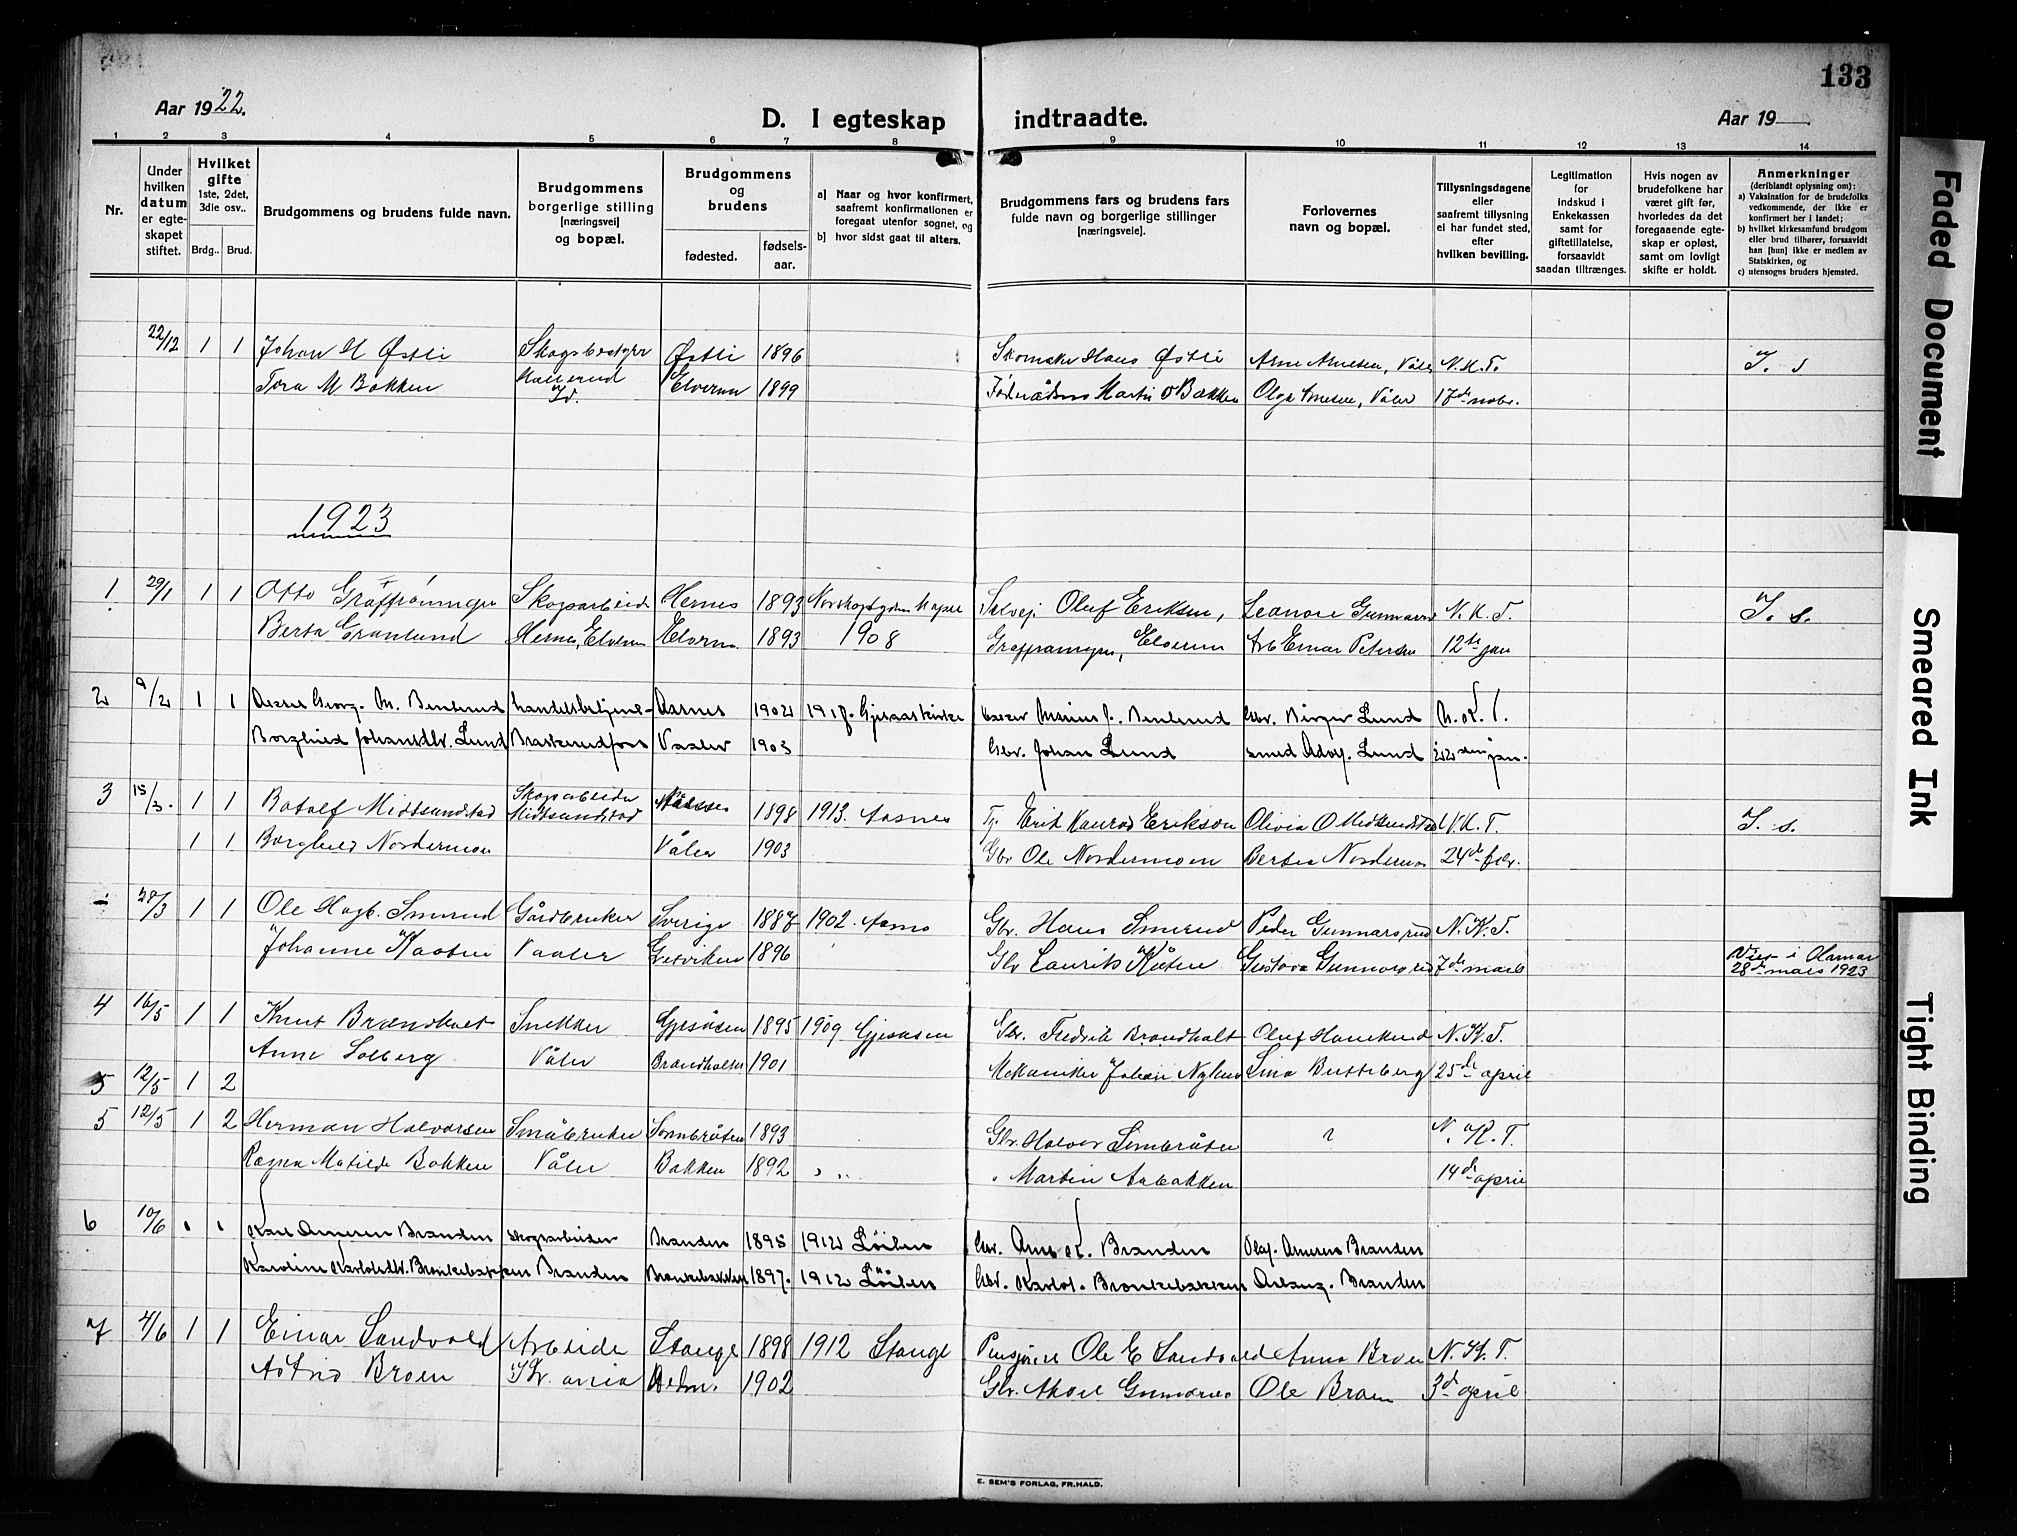 133
Aar 1922.
D. I egteskap indtraadte.
Aar 19
1 2 3 4 5 6 7 8 9 10 11 12 13 14
Nr.
Under hvilken datum er egteskapet stiftet.
Hvilket gifte 1ste, 2det, 3die osv..
Brdg.. Brud.
Brudgommens og brudens fulde navn.
Brudgommens borgerlige stilling [næringsvei] og bopæl.
Brudgommens og brudens
fødested. fødsels-aar.
a) Naar og hvor konfirmert, saafremt konfirmationen er foregaat utenfor sognet, og
b) hvor sidst gaat til alters.
Brudgommens fars og brudens fars fulde navn og borgerlige stillinger [næringsveie].
Forlovernes navn og bopæl.
Tillysningsdagene eller saafremt tillysning ei har fundet sted, efter hvilken bevilling.
Legitimation for indskud i Enkekassen samt for giftetillatelse, forsaavidt saadan tiltrænges.
Hvis nogen av brudefolkene har været gift før, hvorledes da det foregaaende egteskap er opløst, samt om lovligt skifte er holdt.
Anmerkninger
(deriblandt oplysning om):
a) Vaksination for de brudefolks vedkommende, der ikke er konfirmert her i landet;
b) hvilket kirkesamfund brudgom eller brud tilhører, forsaavidt han [hun] ikke er medlem av Statskirken, og
c) utensogns bruders hjemsted.
22/12 1 1 Johan H Østli Østli 1896 Hans Østli Arne Arnesen, Våler N.K.T. I. s
Tora M Bakken Elverum 1899 Martin O Bakken Olga Arnesen, Våler 17de nobr.
1923
1 29/1 1 1 Otto Skogsarbeid Hernes 1893 Oluf Eriksen, Leanore N.K.T. I. s.
Berta Granlund Hernes, Elverum Elverum 1893 1908 Elverum Einar Petersen 12te jan
2 9/2 1 1 Georg. M. Benterud handelsbetjent - Aasnes 1902 1917. Gjesaaskirke Marius J. Benterud Gbr. Birger Lund N.K.T.
Borghild Johansdtr. Lund Braskereidfoss Vaaler 1903 Gbr. Johan Lund smed Adolf. Lund 22den jan.
3 15/3. 1 1 Botolf Midtsundstad Skogsarbeider Midtsundstad 1898 1913. Aasnes Erik Konrad Erikson Olivia O Midtsundstad N.K.T. I. s.
1 1 Borghild Nordermoen Våler 1903 Gbr Ole Nordermoen Bertea Nordermo 24de febr.
- 28/3 1 1 Ole Hagb. Smerud Gårdbruker Sverige 1887 1902. Aasnes Gbr. Hans Smerud Peder Gunnarsrud N.K.T.
Johanne Kaaten Vaaler 1896 Gbr Laurits Kåten Gustava Gunnarsrud 7de marts Viet i Hamar 28de mars 1923
4 16/5 1 1 Knut Brandholt Snekker Gjesåsen 1895 1909 Gjesåsen Gbr. Fredrik Brandholt Oluf N.K.T.
Anne Solberg Våler Brandholtet 1901 Mekaniker Johan Lina 25de april
5 12/5 1 2
5 12/5 1 2 Herman Halvorsen Småbruker Sønnbråten 1893 Gbr. Halvor ? N.K.T.
Ragna Matilde Bakken Våler Bakken 1892 " " " Martin Aabakken 14de april
6 10/6 " " Karl Arnesen Branden Skogsarbeider Branden 1895 1912 Löiten Gbr. Arne K. Branden Olaf. Arnesen Branden
Karoline Karlotsdtr. Bronkebakken Branden Bronkebakken 1897. 1912 Löiten Gbr. Karlot. Bronkebakken Erlang. Branden
7 4/6 1 1 Einar Sandvold Arbeider Stange 1898 1912 Stange Ole E Sandvold Anna Broen N.K.T.
Astrid Broen Kr.ania 1902 Gbr. Aksel Ole Broen 3de april
E. SEM'S FORLAG, FR.HALD.
Faded Document
Smeared Ink
Tight Binding